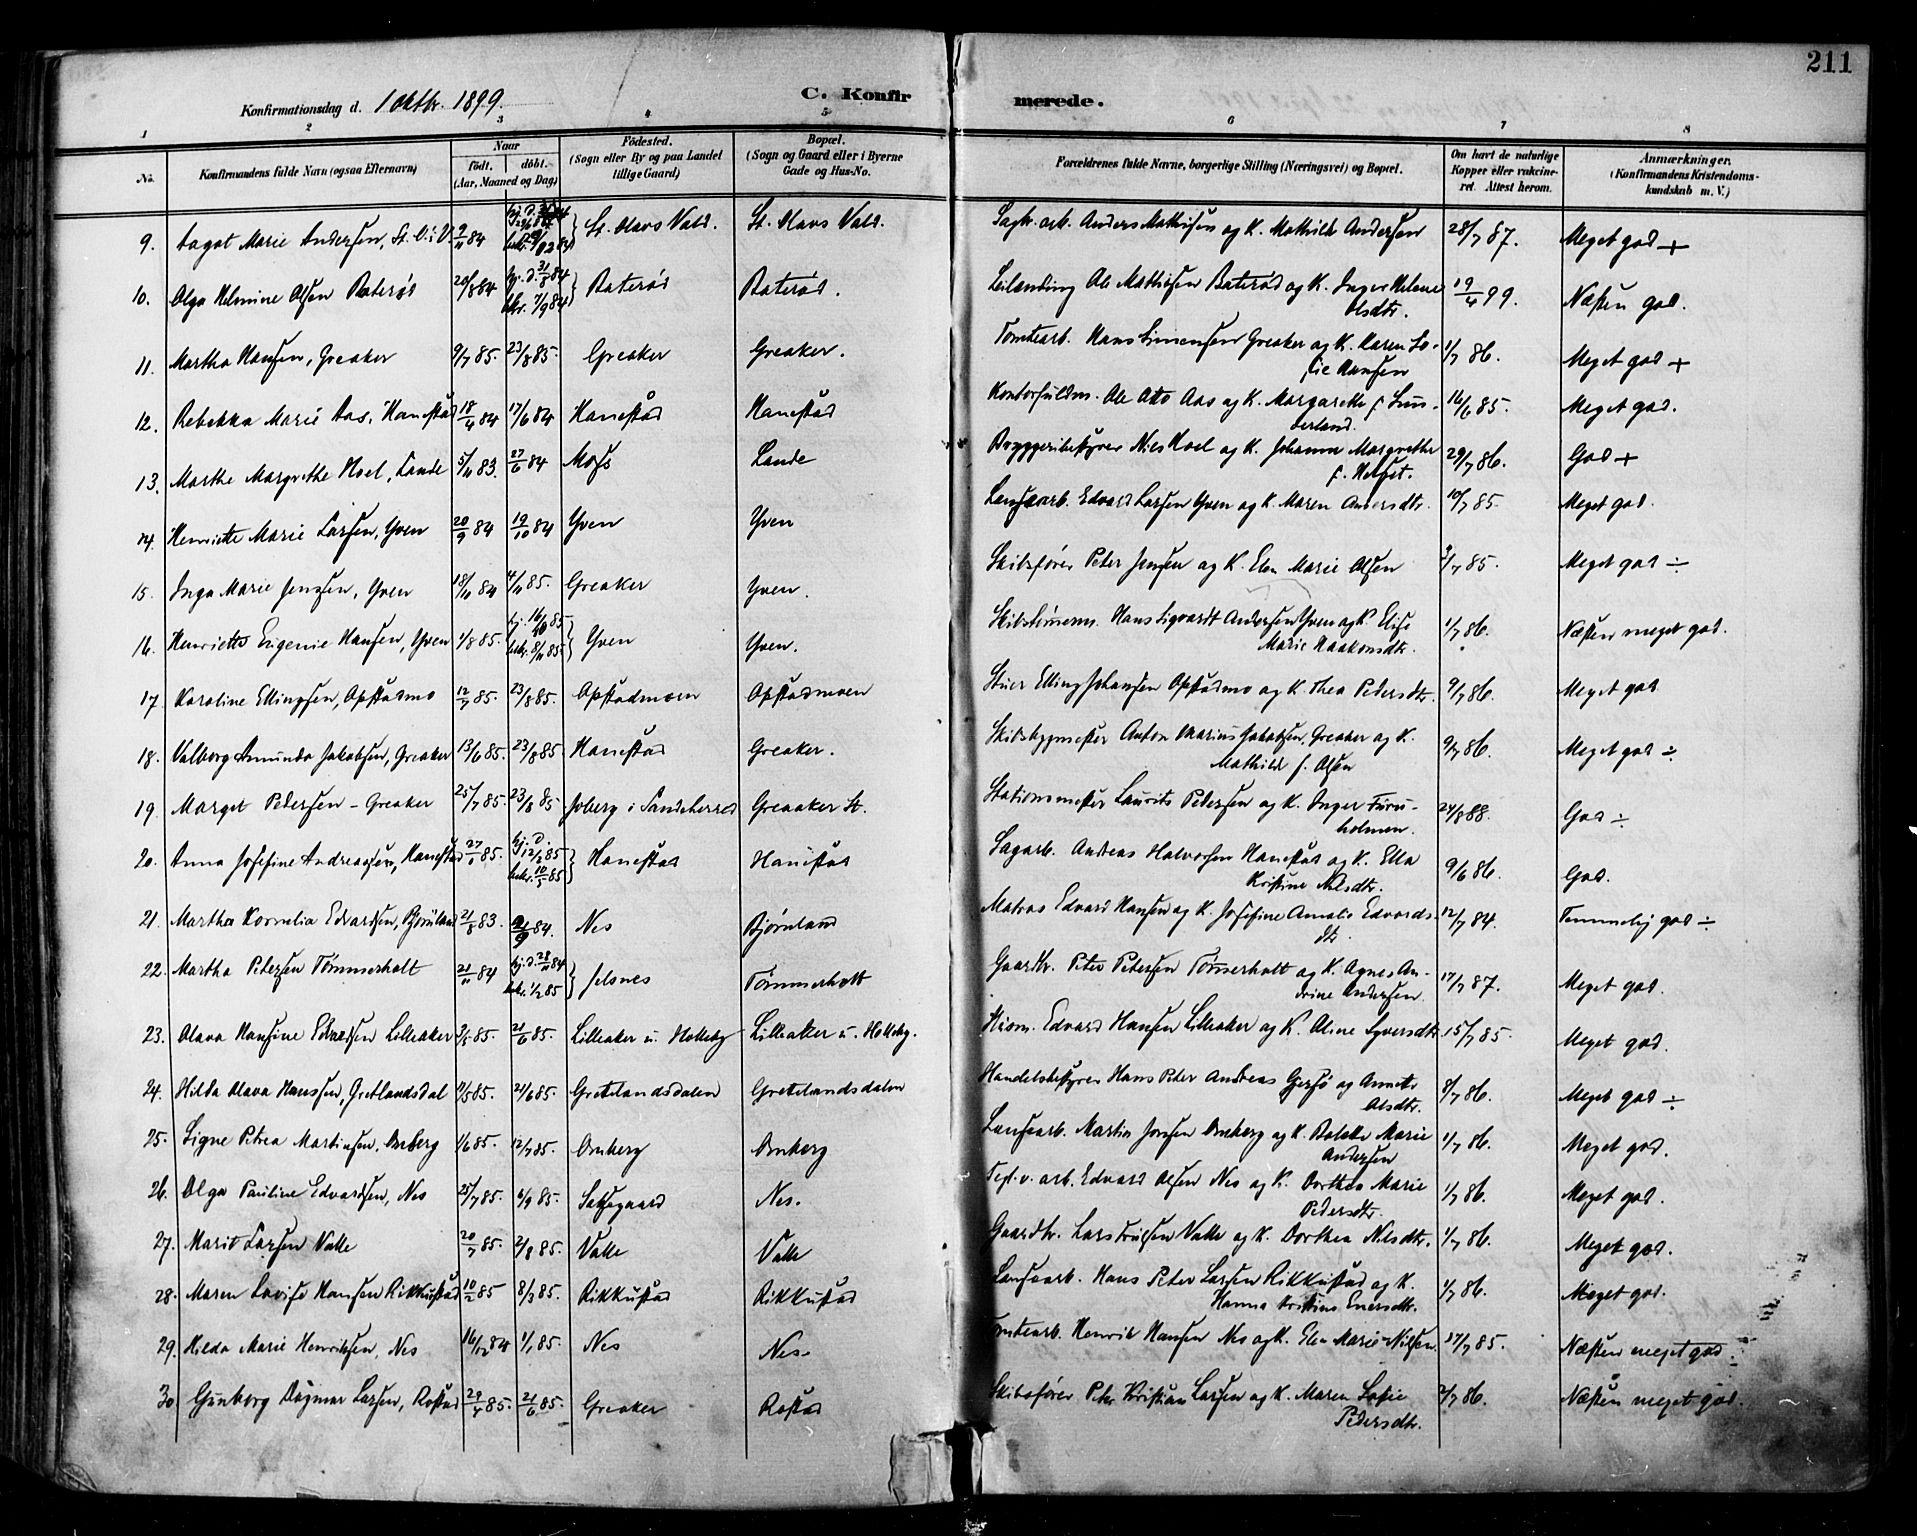 211
Konfirmationsdag d. 1 Oktbr. 1899. C. Konfirmerede.
1 2 3 4 5 6 7 8
No. Konfirmandens fulde Navn (ogsaa Efternavn) Naar født. døbt. (Aar, Maaned og Dag) Fødested. (Sogn eller By og paa Landet tillige Gaard) Bopæl. (Sogn og Gaard eller i Byerne Gade og Hus-No. Forældrenes fulde Navne, borgerlige Stilling (Næringsvei) og Bopæl. Om havt de naturlige Kopper eller vakcineret. Attest herom. Anmærkninger. (Konfirmandens Kristendomskundskab m. V.)
9. Aagot Marie Andersen, St. O. V. 9/11 84 St. Olavs Vold. St. Olavs Vold. Anders Mathisen og K. Mathilde Andersen 28/7 87. Meget god +
10. Olga Helmine Olsen Baterød 20/8 84 hj. d. 31/8 84 bkr. 7/9 84 Baterød Baterød. Leilænding Ole Mathisen Baterød og K. Inger Helene Olsdtr. 19/4 99. Næsten god.
11. Martha Hansen, Greaker 9/7 85. 23/8 85. Greaker Greaker. Tomtearb. Hans Simensen Greaker og K. Karen Sofie Hansen 1/7 86. Meget god +
12. Rebekka Marie Aas, Hanestad 18/4 84 17/6 84 Hanestad Hanestad Kontorfuldm. Ole Otto Aas og K. Margarethe f. Sunderland. 16/6 85. Meget god.
13. Marthe Margrethe Hoel, Lande 5/11 83. 27/6 84 Moss Lande Bryggeribestyrer Niels Hoel og K. Johanne Margrethe f. Helset. 29/7 86. God +
14. Henriette Marie Larsen, Yven 20/9 84 19/10 84 Yven Yven Lensearb. Edvard Larsen Yven og K. Maren Andersdtr. 10/7 85. Meget god.
15. Inga Marie Jensen, Yven 18/11 84 Greaker Yven. Skibsfører Peter Jensen og K. Elen Marie Olsen 3/7 85. Meget god ÷
16. Henriette Eugenie Hansen, Yven 1/8 85. hj. 16/10 85 bekr. 8/11 85 Yven Yven. Skibstømerm. Hans Sigvardt Andersen Yven og K. Elise Marie Haakonsdtr. 1/7 86. Næsten meget god.
17. Karoline Ellingsen, Opstadmo 12/7 85. 23/8 85. Opstadmoen Opstadmoen Stuer Elling Johansen Opstadmo og K. Thea Pedersdtr. 9/7 86. Meget god
18. Valborg Amunda Jakobsen, Greaker 13/6 85. 23/8 85 Hanestad Greaker. Skibsbygmester Anton Marius Jakobsen, Greaker og K. Mathilde f. Olsen 9/7 86. Meget god ÷
19. Margit Pedersen - Greaker 25/7 85. 23/8 85 Joberg i Sandeherred Greaaker St. Stationsmester Laurits Pedersen og K. Inger Furuholmen. 24/8 88. God ÷
20. Anna Josefine Andreassen, Hanestad 85. hj. d. 12/2 85 bekr. 10/5 85 Hanestad Hanestad Sagarb. Andreas Halvorsen Hanestad og K. Ella Kristine Nilsdtr. 9/6 86. God.
21. Martha Kornelia Edvardsen, Bjørnland 21/8 83. 21/9 84. Nes Bjørnland Matros Edvard Hansen og K. Josefine Amalie Edvardsdtr. 12/7 84. Temmelig god ÷
22. Martha Petersen Tømmerholt 21/11 84 hj. d. 28/11 84 bekr. 1/2 85 Jelsnes Tømmerholt Gaardbr. Peter Petersen Tømmerholt og K. Agnes Andrine Andersen. 17/7 87. Meget god.
23. Olava Hansine Edvardsen Lilleaker 3/5 85. 21/6 85. Lilleaker u. Holleby Lilleaker u. Holleby. Edvard Hansen Lilleaker og K. Oline Syversdtr. 15/7 85. Meget god.
24. Hilda Olava Hanssen, Gretlandsdal 85. 21/6 85. Gretelandsdalen Gretelandsdalen Handelsbestyrer Hans Peter Andreas Gersø og Annette Olsdtr. 8/7 86. Meget god ÷
25. Signe Petrea Martinsen, Omberg 1/6 85. 12/7 85. Omberg Omberg Lensearb. Martin Jensen Omberg og K. Bolette Marie Andersen 1/7 86. Meget god.
26. Olga Pauline Edvardsen, Nes 25/7 85. 6/9 85. Nes. Tegl.v. arb. Edvard Olsen Nes og K. Dorthea Marie Pedersdtr. 1/7 86. Meget god.
27. Marit Larsen Valle 20/7 85. 2/8 85. Valle Valle Gaardbr. Lars Truelsen Valle og K. Dorthea Nilsdtr. 1/7 86. Meget god.
28. Maren Lovise Hansen Rikkustad 10/2 85 8/3 85. Rikkustad Rikkustad Lensearb. Hans Peter Larsen Rikkustad og K. Hanna Kristine Enersdtr. 1/7 86. Meget god.
29. Hilda Marie Henriksen, Nes 16/12 84 1/1 85. Nes Nes. Tomtearb. Henrik Hansen Nes og K. Elen Marie Nilsen. 27/7 85. Næsten meget god.
30. Gunborg Dagmar Larsen, Rostad 29/4 85. 21/6 85. Greaker Rostad Skibsfører Peter Kristian Larsen og K. Maren Sofie Pedersdtr. 2/7 86. Næsten meget god.